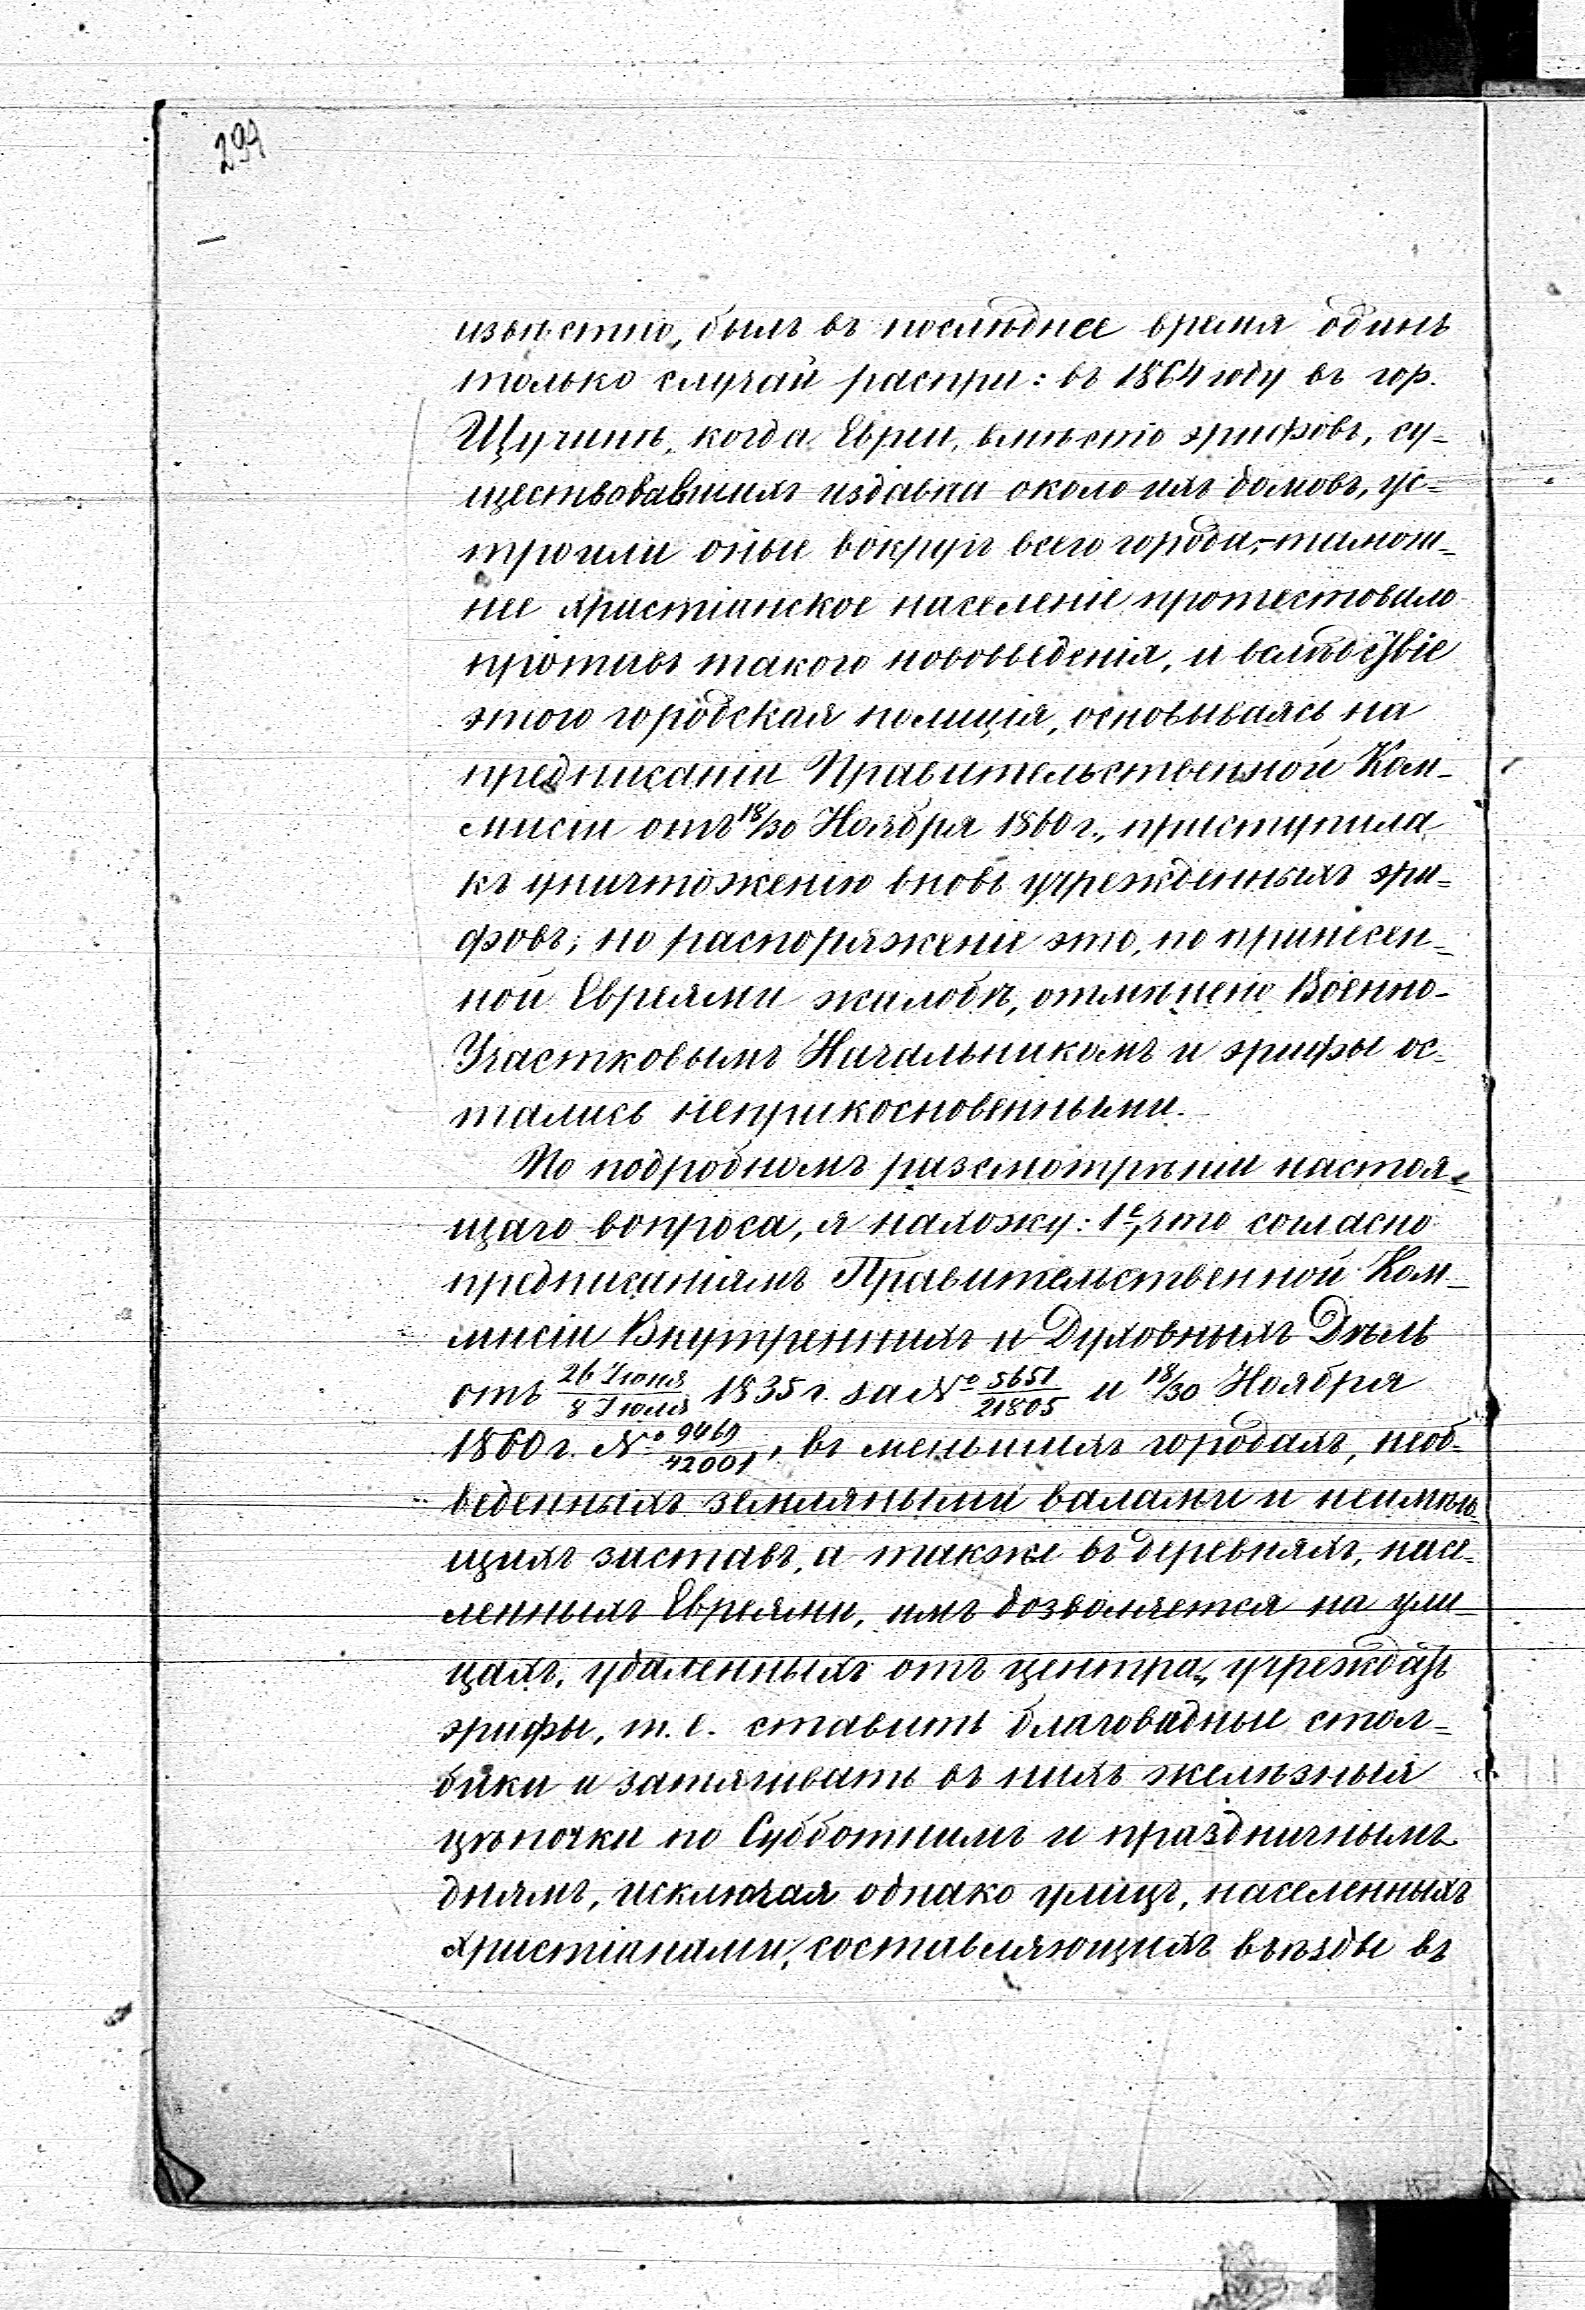 294
извѣстно, былъ въ послѣднее время одинъ
только случай распри: въ 1864 году въ гор.
Щучинѣ, когда Евреи, вмѣсто эрифовъ, су-
ществовавшихъ издавна около ихъ домовъ, ус-
троили оные вокругъ всего города,-тамош-
нее христіанское населеніе протестовало
противъ такого нововведенія, и вслѣдствіе
этого городская полиція, основываясь на
предписаніи Правительственной Ком-
мисіи отъ 18/30 Ноября 1860 г., приступила
къ уничтоженію вновь учрежденныхъ эри-
фовъ; но распоряженіе это, по принесен-
ной Евреями жалобѣ, отмѣнено Военно-
Участковымъ Начальникомъ и эрифы ос-
тались неприкосновенными.
По подробномъ разсмотрѣніи настоя-
щаго вопроса, я нахожу: 1е, что согласно
предписаніямъ Правительственной Ком-
мисіи Внутреннихъ и Духовныхъ Дѣлъ
отъ 26 Іюня/8 Іюля 1835 г. за № 5651/21805 и 18/30 Ноября
1860 г. № 9469/42001, въ меньшихъ городахъ, необ-
веденныхъ земляными валами и неимѣю-
щихъ заставъ, а также въ деревняхъ, насе-
ленныхъ Евреями, имъ дозволяется на ули-
цахъ, удаленныхъ отъ центра, учреждать
эрифы, т.е. ставить благовидные стол-
бики и затягивать въ нихъ желѣзныя
цѣпочки по Субботнимъ и праздничнымъ
днямъ, исключая однако улицъ, населенныхъ
христіанами, составляющихъ въѣзды въ